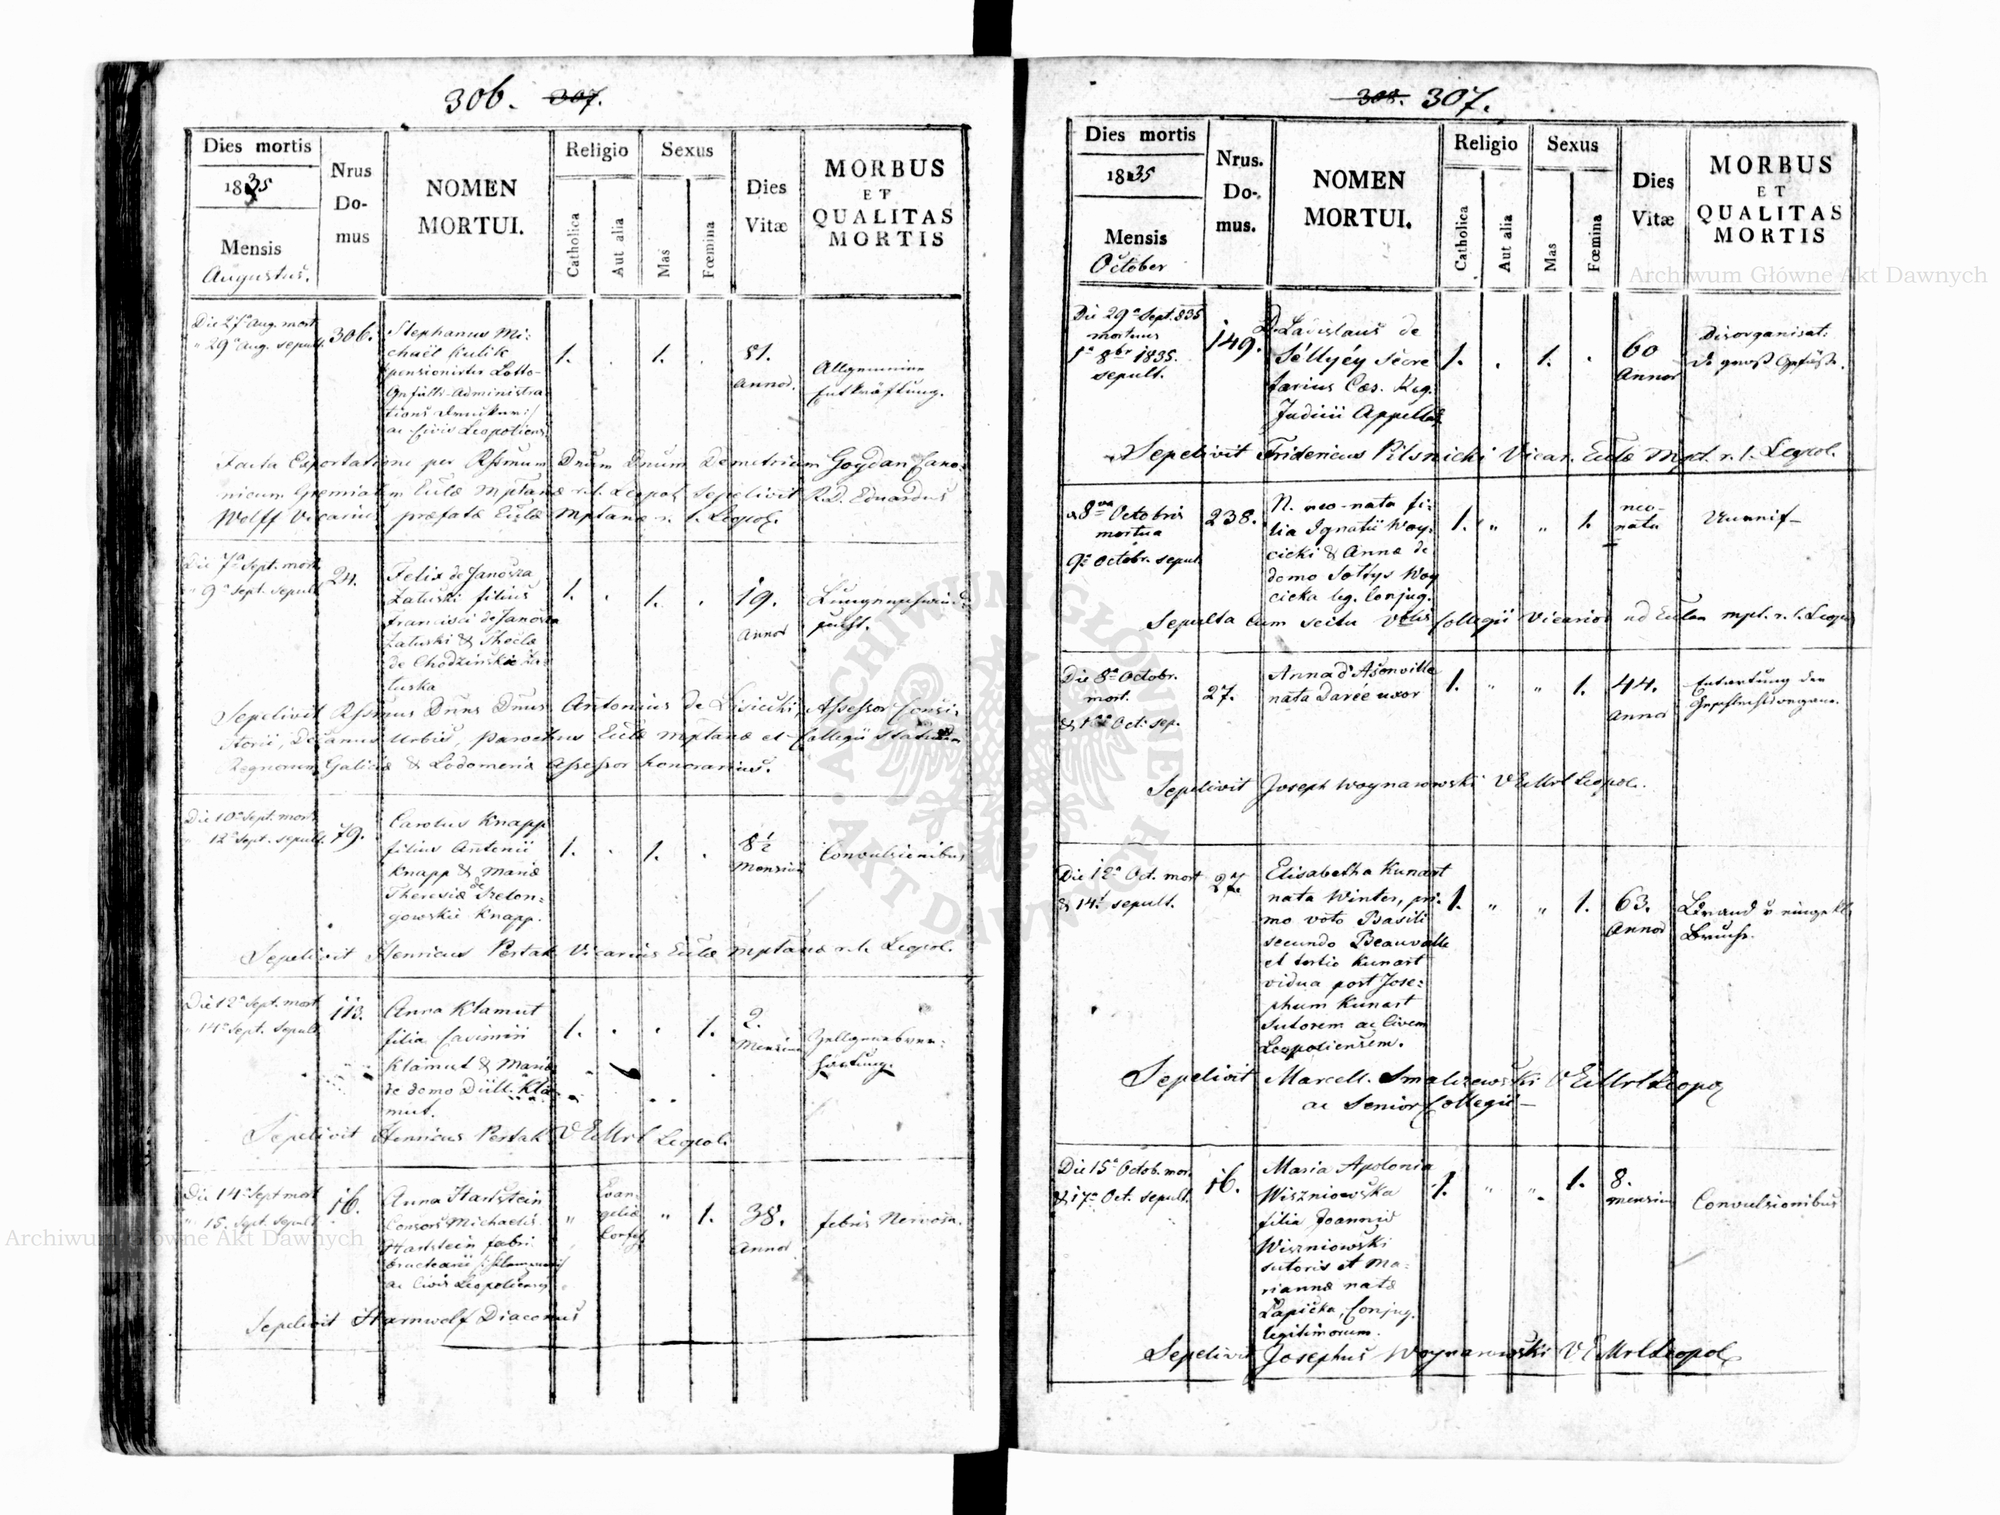 306. 307.
Dies mortis
1835
Mensis
Augustus.
Nrus
Do-
mus
NOMEN
MORTUI.
Religio
Catholica
Aut alia
Sexus
Mas
Fœmina
Dies
Vitæ
MORBUS
ET
QUALITAS
MORTIS
Die 27a Aug. mort.
" 29a Aug. sepult.
306.
Stephanus Mi-
chaël Kulik
pensionirter Lotto-
Gefälls-Administra-
tions Drucker
ac Civis Leopoliens.
1. . 1. .
81.
Annor.
Allgemeine
Entkräftung.
Facta Exportatione per Rssmum Dnum Dnum Demetrium Goydan Cano-
nicum Gremialem Eccлæ Mptanæ r. l. Leopol. sepelivit R. D. Eduardus
Wolff Vicarius præfatæ Ecclæ Mptanæ r. l. Leopol.
Die 7a Sept. mort.
" 9a Sept. sepult.
24.
Felix de Janosza
Załuski filius
Francisci de Janosza
Załuski & Theclæ
de Chodzinskie Za-
łuska
1. . 1. .
19.
Annor
Sepelivit Rssmus Dnus Dnus Antonius de Lisiecki, Assessor Consi-
storii, Decanus Urbis, parochus Ecclæ Mptanæ et Collegii Statuum
Regnorum Galiciæ & Lodomeriæ Assessor honorarius.
Die 10a Sept. mort.
12a Sept. sepult.
79.
Carolus Knapp
filius Antonii
Knapp & Mariæ
Theresiæ de
gowskie Knapp.
1. . 1. .
8½
Mensium
Convulsionibus
Sepelivit Henricus Pertak Vicarius Ecclæ Mptanæ r. l. Leopol.
Die 12a Sept. mort
14a Sept. sepult.
113.
Anna Klamut
filia Casimiri
Klamut & Mariæ
de domo Düll Kla-
mut.
1. . . 1.
2.
Mensium
Zellgewebver-
härtung.
Sepelivit Henricus Pertak V E M r l Leopol.
Die 14a Sept mort
" 15. Sept. sepult
16.
Anna Hartstein
Consors Michaelis
Hartstein fabri
ac Civis Leopoliensis
"
Evan-
gelicæ
Confes
" 1.
38.
Annor
febris Nervosa.
Sepelivit Harnwolf Diaconus
308. 307.
Dies mortis
1835
Mensis
October
Nrus.
Do-
mus.
NOMEN
MORTUI.
Religio
Catholica
Aut alia
Sexus
Mas
Fœmina
Dies
Vitæ
MORBUS
ET
QUALITAS
MORTIS
Die 29a Sept. 835
mortuus
1a 8br 1835.
sepult.
149.
D. Ladislaus de
Séllyéy Secre
tarius Cæs. Reg.
Judicii Appellat.
1. . 1. .
60
Annor
Disorganisat:
Sepelivit Fridericus Pilsnicki Vicar. Ecclæ Mpt. r. l. Leopol.
8va Octobris
mortua
9a Octobr. sepult.
238.
N. neo-nata fi-
lia Ignatii Woy-
cicki & Annæ de
domo Sołtys Woy
cicka leg. Conjug.
1. " " 1.
neo-
nata
Sepulta cum scitu Vblis Collegii Vicarior ad Ecclam mpt. r. l. Leopol
Die 8a Octobr.
mort.
Oct. sep.
27.
Anna d'Asonville
nata Darée uxor
1. " " 1.
44.
Annor
Entartung der
Geschlechtsorgane.
Sepelivit Joseph Woynarowski V E M r l Leopol.
Die 12a Oct. mort
& 14a sepult.
27.
Elisabetha Kunart
nata Winter, pri-
mo voto Basili
secundo Beauvalle
et tertio Kunart
vidua post Jose-
phum Kunart
Sutorem ac Civem
Leopoliensem.
1. " " 1.
63.
Annor
Brand v eingekl.
Bruche.
Sepelivit Marcell. Smalczewski V E M r l Leopol
ac Senior Collegii
Die 15a Octob. mor.
& 17a Oct. sepult.
16.
Maria Apolonia
Wiszniowska
filia Joannis
Wiszniowski
sutoris et Ma-
riannæ natæ
Lapicka, Conjug.
legitimorum.
1. " " 1.
8.
mensium
Convulsionibus
Sepelivit Josephus Woynarowski V E M r l Leopol
Archiwum Główne Akt Dawnych
Archiwum Główne Akt Dawnych
ARCHIWUM GŁÓWNE AKT DAWNYCH